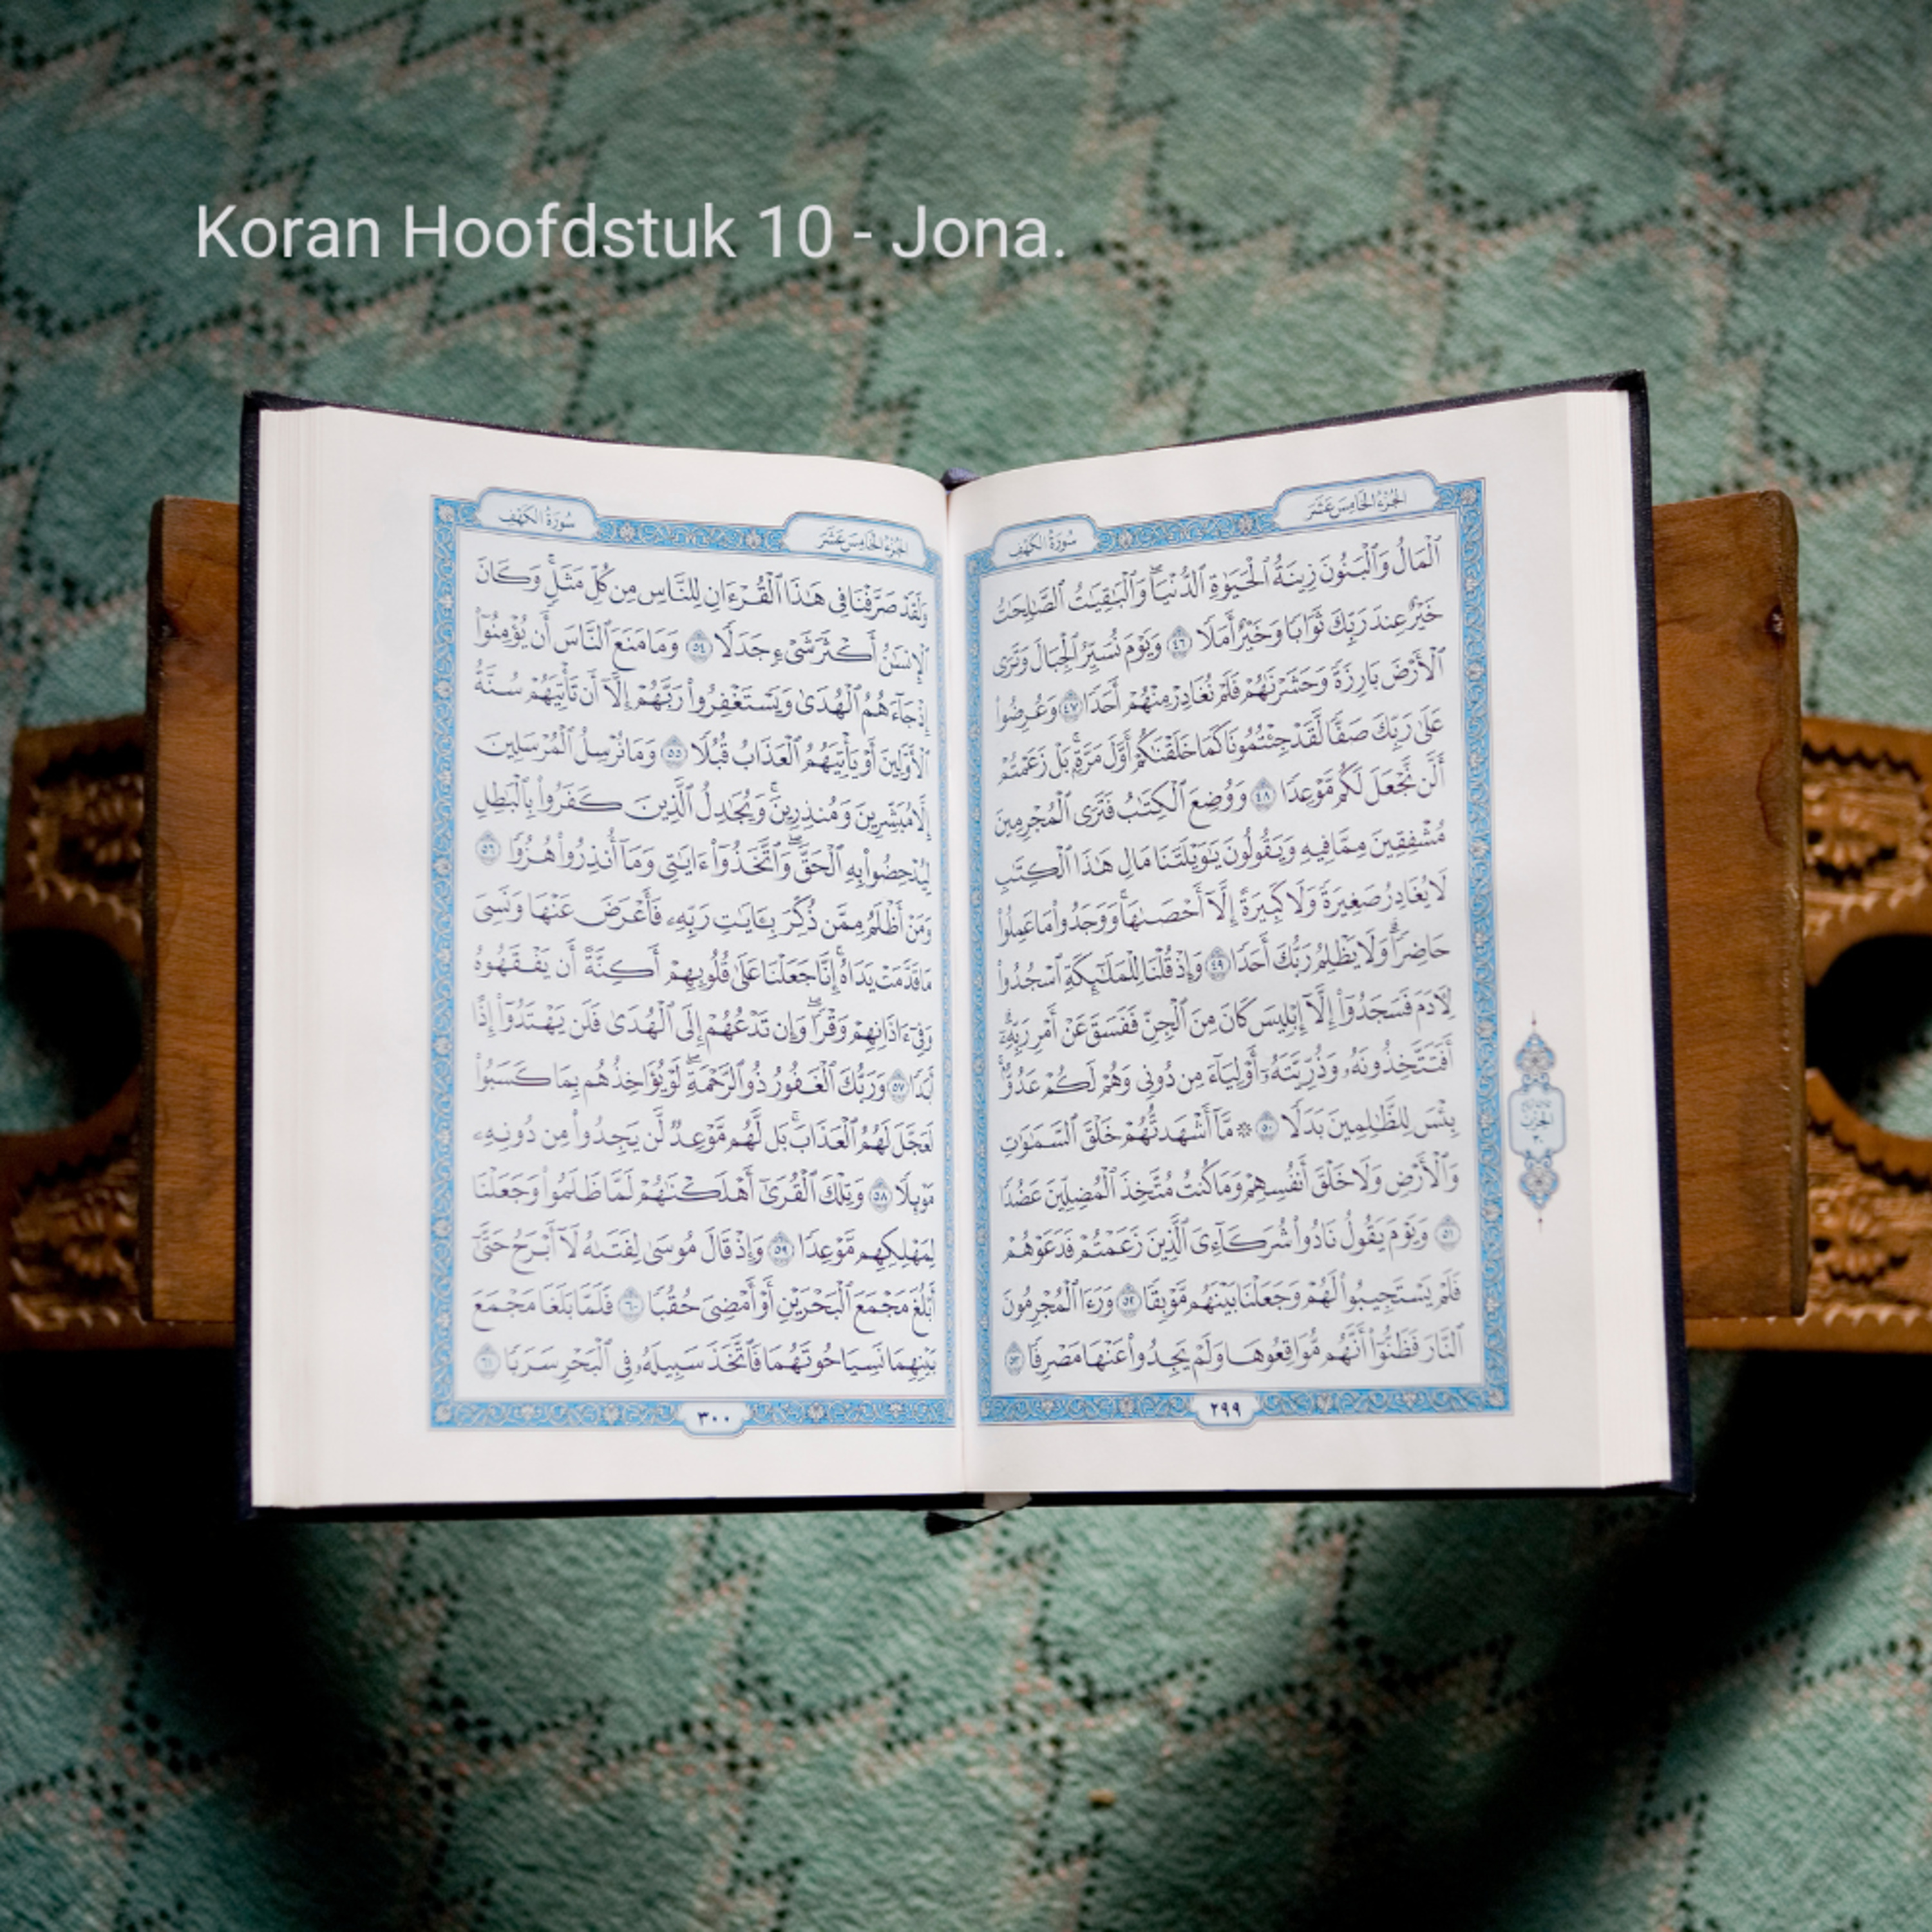 Koran Hoofdstuk 10 - Jona.
الجزء الخامس عشر
سورة الكهف
ٱلْمَالُ وَٱلْبَنُونَ زِينَةُ ٱلْحَيَوٰةِ ٱلدُّنْيَا ۖ وَٱلْبَٰقِيَٰتُ ٱلصَّٰلِحَٰتُ
خَيْرٌ عِندَ رَبِّكَ ثَوَابًا وَخَيْرٌ أَمَلًا ٤٦ وَيَوْمَ نُسَيِّرُ ٱلْجِبَالَ وَتَرَى
ٱلْأَرْضَ بَارِزَةً وَحَشَرْنَٰهُمْ فَلَمْ نُغَادِرْ مِنْهُمْ أَحَدًا ٤٧ وَعُرِضُوا۟
عَلَىٰ رَبِّكَ صَفًّا لَّقَدْ جِئْتُمُونَا كَمَا خَلَقْنَٰكُمْ أَوَّلَ مَرَّةٍۭ ۚ بَلْ زَعَمْتُمْ
أَلَّن نَّجْعَلَ لَكُم مَّوْعِدًا ٤٨ وَوُضِعَ ٱلْكِتَٰبُ فَتَرَى ٱلْمُجْرِمِينَ
مُشْفِقِينَ مِمَّا فِيهِ وَيَقُولُونَ يَٰوَيْلَتَنَا مَالِ هَٰذَا ٱلْكِتَٰبِ
لَا يُغَادِرُ صَغِيرَةً وَلَا كَبِيرَةً إِلَّآ أَحْصَىٰهَا ۚ وَوَجَدُوا۟ مَا عَمِلُوا۟
حَاضِرًا ۗ وَلَا يَظْلِمُ رَبُّكَ أَحَدًا ٤٩ وَإِذْ قُلْنَا لِلْمَلَٰٓئِكَةِ ٱسْجُدُوا۟
لِءَادَمَ فَسَجَدُوٓا۟ إِلَّآ إِبْلِيسَ كَانَ مِنَ ٱلْجِنِّ فَفَسَقَ عَنْ أَمْرِ رَبِّهِۦٓ ۗ
أَفَتَتَّخِذُونَهُۥ وَذُرِّيَّتَهُۥٓ أَوْلِيَآءَ مِن دُونِى وَهُمْ لَكُمْ عَدُوٌّۢ ۚ
بِئْسَ لِلظَّٰلِمِينَ بَدَلًا ٥٠ ۞ مَّآ أَشْهَدتُّهُمْ خَلْقَ ٱلسَّمَٰوَٰتِ
وَٱلْأَرْضِ وَلَا خَلْقَ أَنفُسِهِمْ وَمَا كُنتُ مُتَّخِذَ ٱلْمُضِلِّينَ عَضُدًا
٥١ وَيَوْمَ يَقُولُ نَادُوا۟ شُرَكَآءِىَ ٱلَّذِينَ زَعَمْتُمْ فَدَعَوْهُمْ
فَلَمْ يَسْتَجِيبُوا۟ لَهُمْ وَجَعَلْنَا بَيْنَهُم مَّوْبِقًا ٥٢ وَرَءَا ٱلْمُجْرِمُونَ
ٱلنَّارَ فَظَنُّوٓا۟ أَنَّهُم مُّوَاقِعُوهَا وَلَمْ يَجِدُوا۟ عَنْهَا مَصْرِفًا ٥٣
٢٩٩
الحزب
٣٠
الجزء الخامس عشر
سورة الكهف
وَلَقَدْ صَرَّفْنَا فِى هَٰذَا ٱلْقُرْءَانِ لِلنَّاسِ مِن كُلِّ مَثَلٍ ۚ وَكَانَ
ٱلْإِنسَٰنُ أَكْثَرَ شَىْءٍ جَدَلًا ٥٤ وَمَا مَنَعَ ٱلنَّاسَ أَن يُؤْمِنُوٓا۟
إِذْ جَآءَهُمُ ٱلْهُدَىٰ وَيَسْتَغْفِرُوا۟ رَبَّهُمْ إِلَّآ أَن تَأْتِيَهُمْ سُنَّةُ
ٱلْأَوَّلِينَ أَوْ يَأْتِيَهُمُ ٱلْعَذَابُ قُبُلًا ٥٥ وَمَا نُرْسِلُ ٱلْمُرْسَلِينَ
إِلَّا مُبَشِّرِينَ وَمُنذِرِينَ ۚ وَيُجَٰدِلُ ٱلَّذِينَ كَفَرُوا۟ بِٱلْبَٰطِلِ
لِيُدْحِضُوا۟ بِهِ ٱلْحَقَّ ۖ وَٱتَّخَذُوٓا۟ ءَايَٰتِى وَمَآ أُنذِرُوا۟ هُزُوًا ٥٦
وَمَنْ أَظْلَمُ مِمَّن ذُكِّرَ بِـَٔايَٰتِ رَبِّهِۦ فَأَعْرَضَ عَنْهَا وَنَسِىَ
مَا قَدَّمَتْ يَدَاهُ ۚ إِنَّا جَعَلْنَا عَلَىٰ قُلُوبِهِمْ أَكِنَّةً أَن يَفْقَهُوهُ
وَفِىٓ ءَاذَانِهِمْ وَقْرًا ۖ وَإِن تَدْعُهُمْ إِلَى ٱلْهُدَىٰ فَلَن يَهْتَدُوٓا۟ إِذًا
أَبَدًا ٥٧ وَرَبُّكَ ٱلْغَفُورُ ذُو ٱلرَّحْمَةِ ۖ لَوْ يُؤَاخِذُهُم بِمَا كَسَبُوا۟
لَعَجَّلَ لَهُمُ ٱلْعَذَابَ ۚ بَل لَّهُم مَّوْعِدٌ لَّن يَجِدُوا۟ مِن دُونِهِۦ
مَوْئِلًا ٥٨ وَتِلْكَ ٱلْقُرَىٰٓ أَهْلَكْنَٰهُمْ لَمَّا ظَلَمُوا۟ وَجَعَلْنَا
لِمَهْلِكِهِم مَّوْعِدًا ٥٩ وَإِذْ قَالَ مُوسَىٰ لِفَتَىٰهُ لَآ أَبْرَحُ حَتَّىٰٓ
أَبْلُغَ مَجْمَعَ ٱلْبَحْرَيْنِ أَوْ أَمْضِىَ حُقُبًا ٦٠ فَلَمَّا بَلَغَا مَجْمَعَ
بَيْنِهِمَا نَسِيَا حُوتَهُمَا فَٱتَّخَذَ سَبِيلَهُۥ فِى ٱلْبَحْرِ سَرَبًا ٦١
٣٠٠